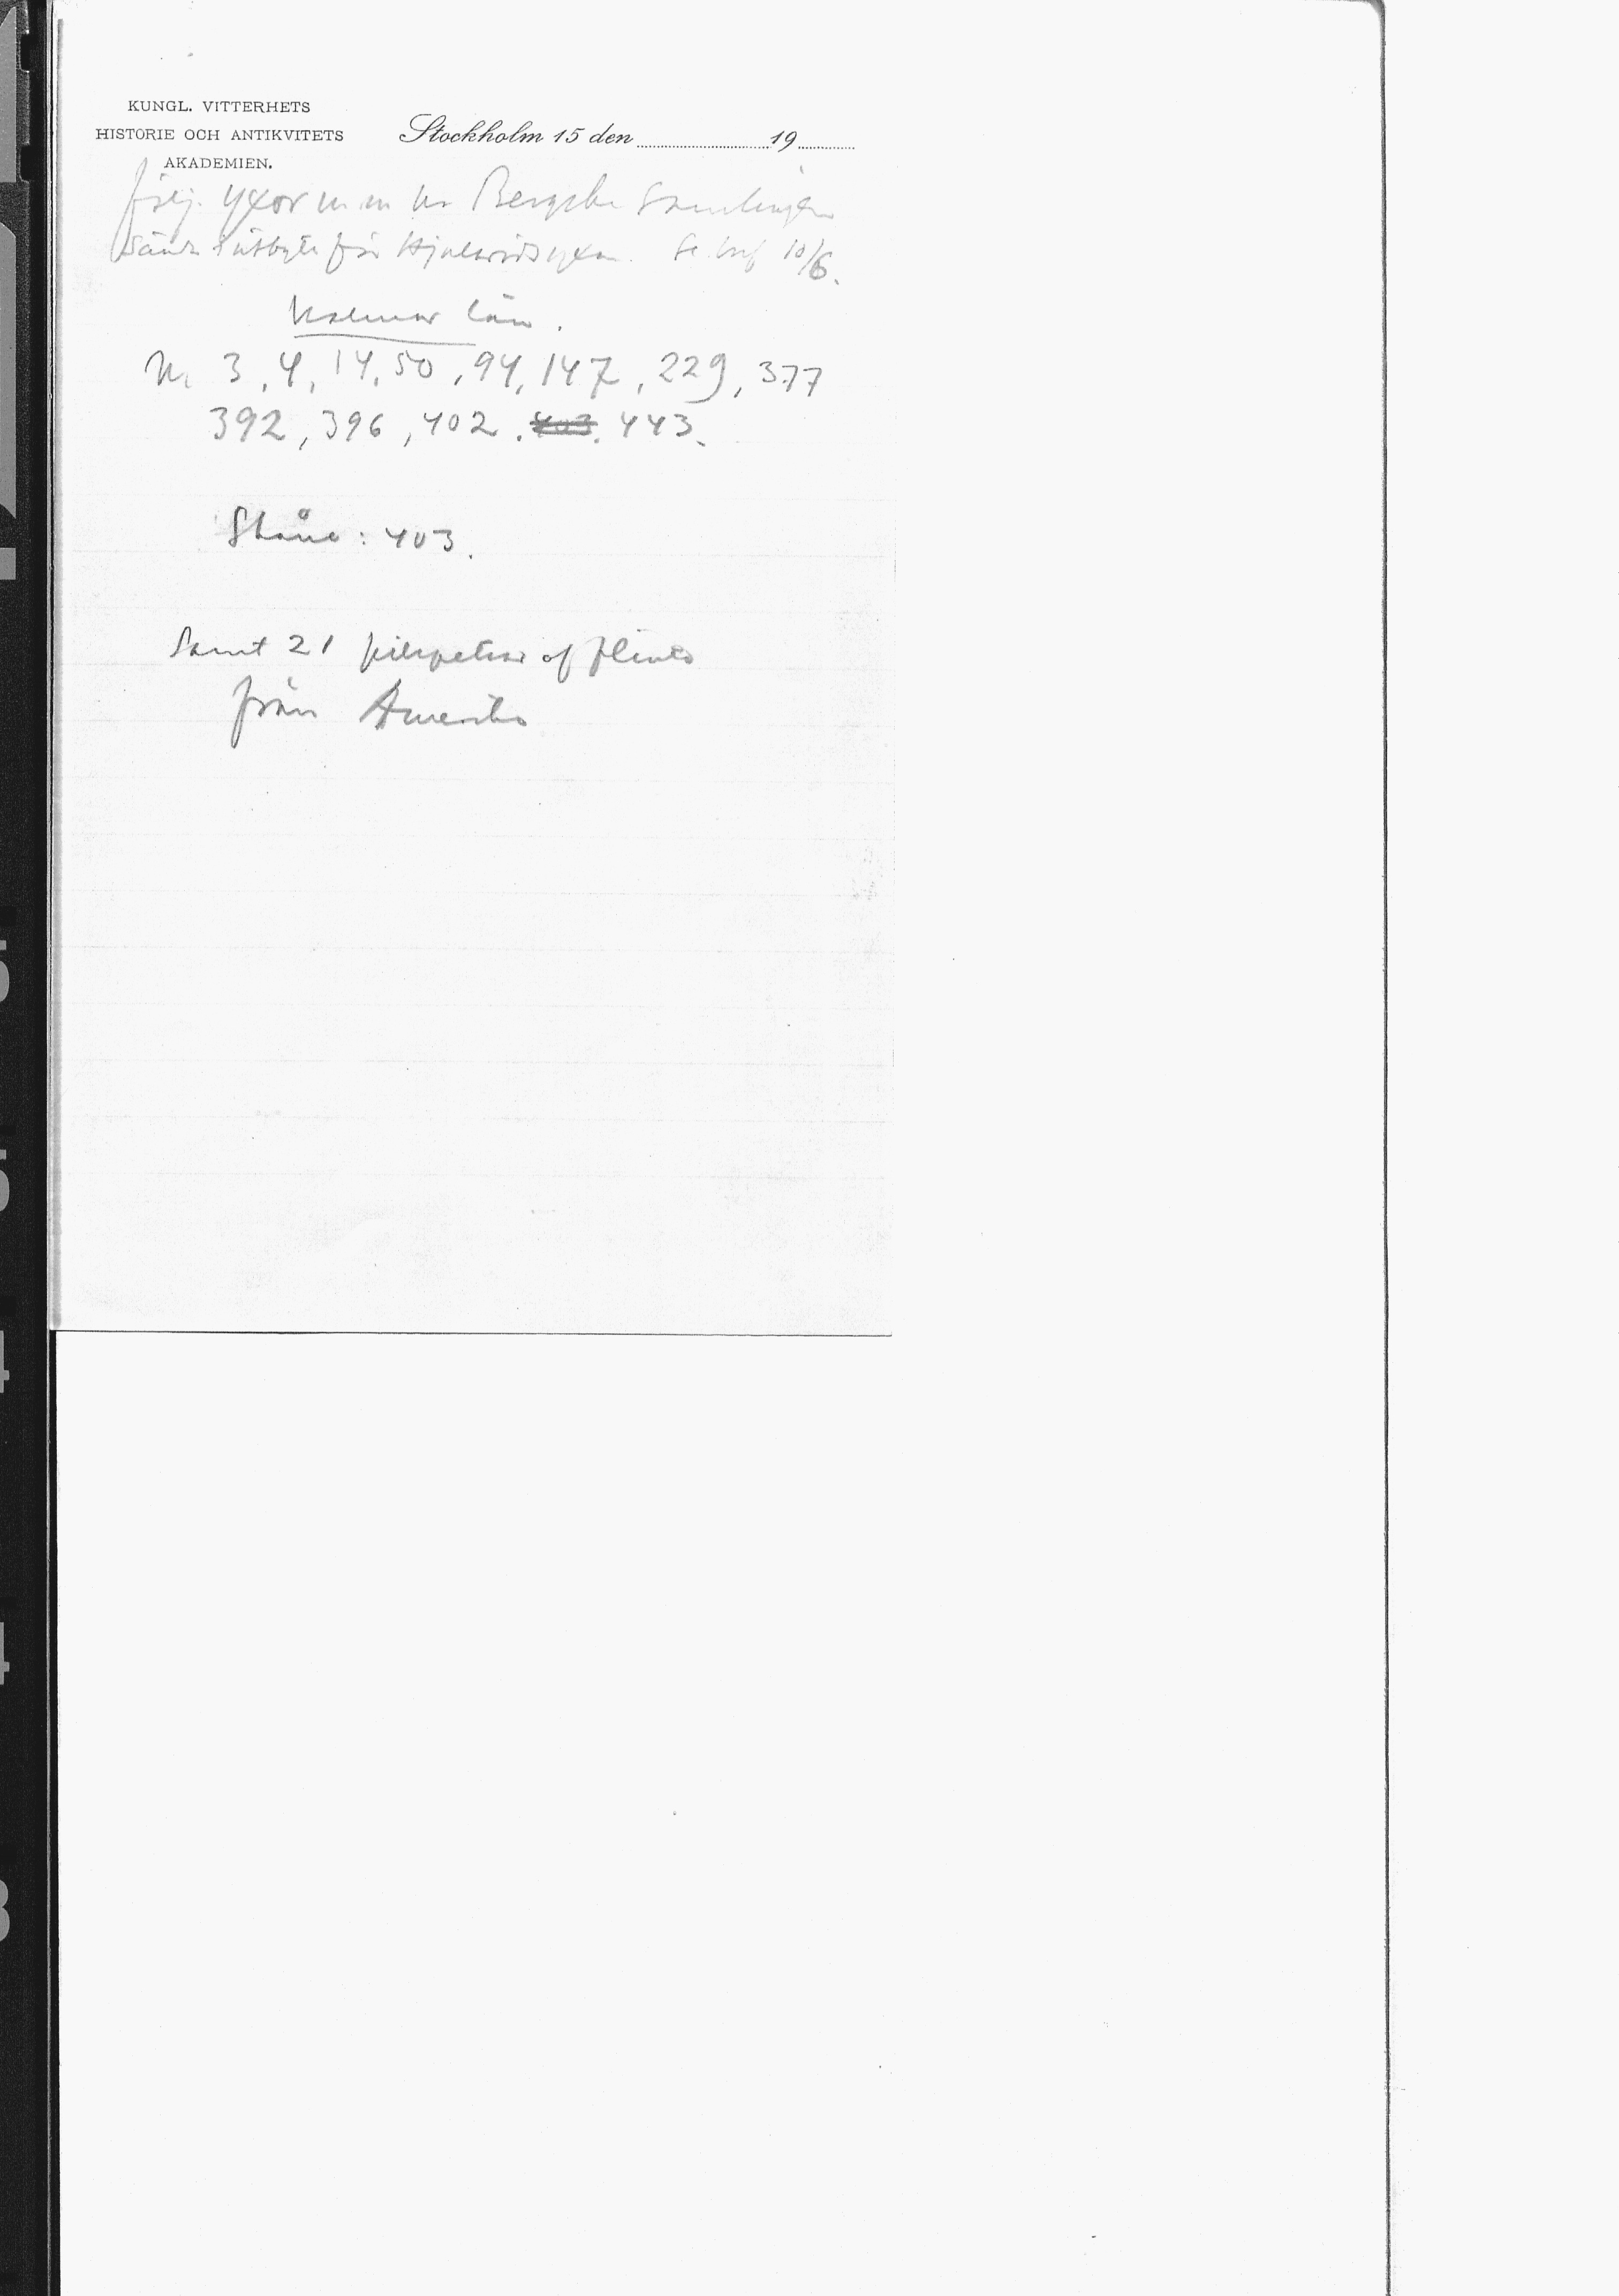 KUNGL. VITTERHETS
HISTORIE OCH ANTIKVITETS
AKADEMIEN.
Stockholm 15 den 19
följ. yxor m m ur Bergska Samlingen
sända i utbyte för Hjulsrids yxan. Se bref 10/6.
Kalmar län.
Nr 3, 4, 14, 50, 94, 147, 229, 377
392, 396, 402, 403, 443.
Skåne: 403.
Samt 21 pilspetsar af flinta
från Amerika